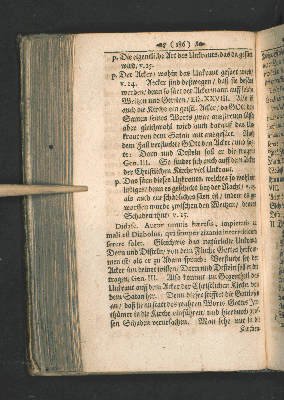 (186)
p. Die eigentliche Art des Unkrauts, das da gesäet
wird, v. 25.
p. Der Acker, wohin das Unkraut gesäet wird,
v. 24. Aecker sind deßwegen, daß sie besäet
werden, denn so säet der Ackermann auff seine
Weitzen und Gersten, Es. XXVIII. Wie
auch die Kirch ein geistl. Acker, da GOtt den
Saamen seines Worts
ober gleichwohl wird auch darauf das Un-
kraut von dem Satan mit ausgesäet. Nach
dem Fall verfluchte GOtt den Acker und sag-
te: Dorn und Disteln soll er dir tragen
Gen. III. So findet sich auch auff dem Acker
der Christlichen Kirche viel Unkraut.
p. Das säen dieses Unkrauts, welches so viel
listiger, denn es geschicht bey der Nacht,
als auch zur schädlichsten ist, indem es ge-
worffen wurde zwischen den Weitzen, dem
Schaden thut, v. 25.
Didasc. Autor omnis hæresios, impietatis &
mali est Diabolus, qui semper zizania inter triticum
serere solet. Gleichwie das natürliche Unkraut
Dorn und Disteln, von dem Fluche Gottes herkom-
men ist, als er zu Adam sprach: Verflucht sey der
Acker um deinet willen, Dorn und Disteln soll er dir
tragen, Gen. III. Also kommt im Gegentheil das
Unkraut auff dem Acker der Christlichen Kirche von
dem Satan her. Denn dieser stifftet die Gottlosen
an, daß sie an statt des wahren Worts Gottes Irr-
thümer in die Kirche einführen, und hierdurch gros-
sen Schaden verursachen. Man sehe nur in die
Kirchen